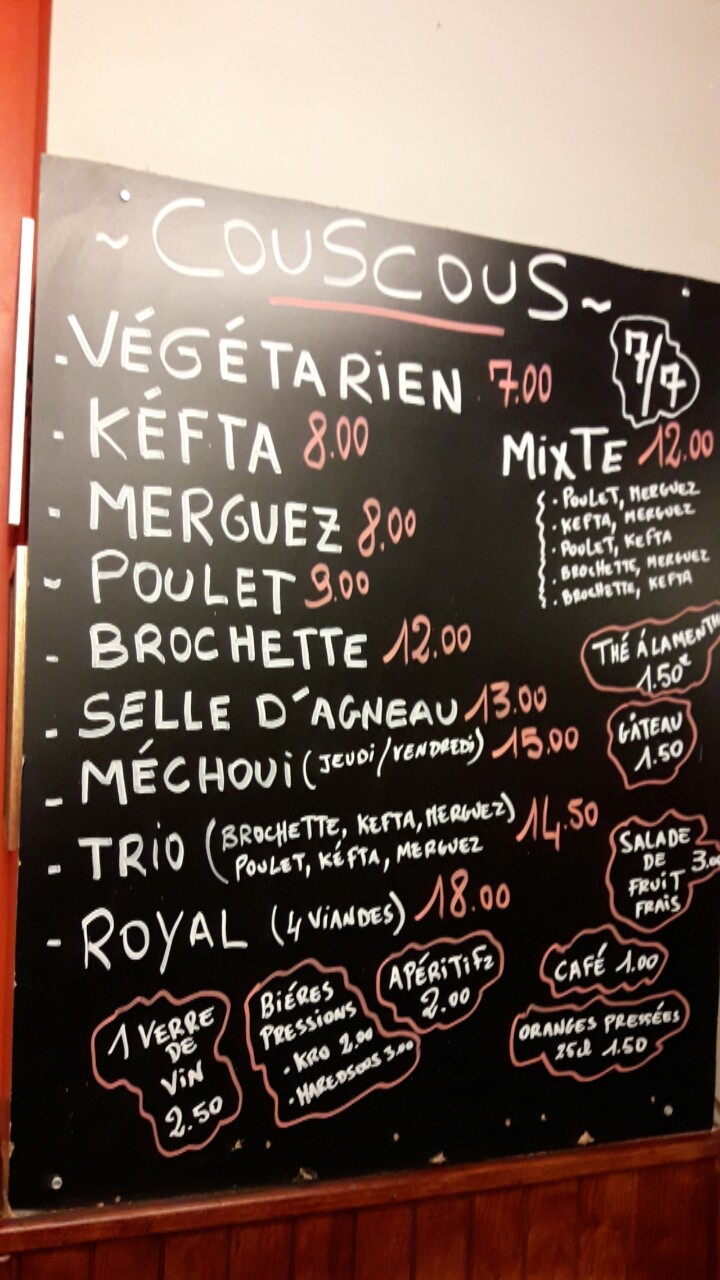 ~ COUSCOUS ~
7/7
- VÉGÉTARIEN 7.00
- KÉFTA 8.00
- MERGUEZ 8.00
- POULET 9.00
- BROCHETTE 12.00
- SELLE D'AGNEAU 13.00
- MÉCHOUI (JEUDI/VENDREDI) 15.00
- TRIO (BROCHETTE, KEFTA, MERGUEZ) 14.50
POULET, KÉFTA, MERGUEZ
- ROYAL (4 VIANDES) 18.00
MIXTE 12.00
- POULET, MERGUEZ
- KEFTA, MERGUEZ
- POULET, KEFTA
- BROCHETTE, MERGUEZ
- BROCHETTE, KEFTA
THÉ Á LA MENTH
1.50€
GÂTEAU
1.50
SALADE
DE 3.00
FRUIT
FRAIS
CAFÉ 1.00
ORANGES PRESSÉES
25cl 1.50
APÉRITIFS
2.00
BIÉRES
PRESSIONS
- KRO 2.00
- MAREDSOUS 3.00
1 VERRE
DE
VIN
2.50